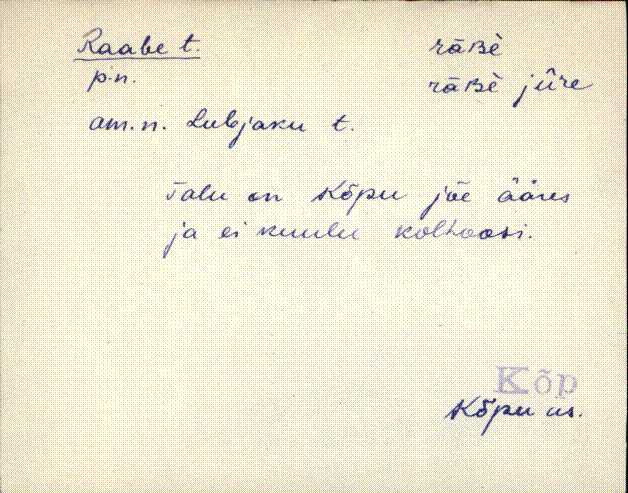 Raabe t. rāʙè
p.n. rāʙè jüre
am.n. Lubjaku t.
Talu on Kõpu jõe ääres
ja ei kuulu kolhoosi.
Kõp
Kõpu us.